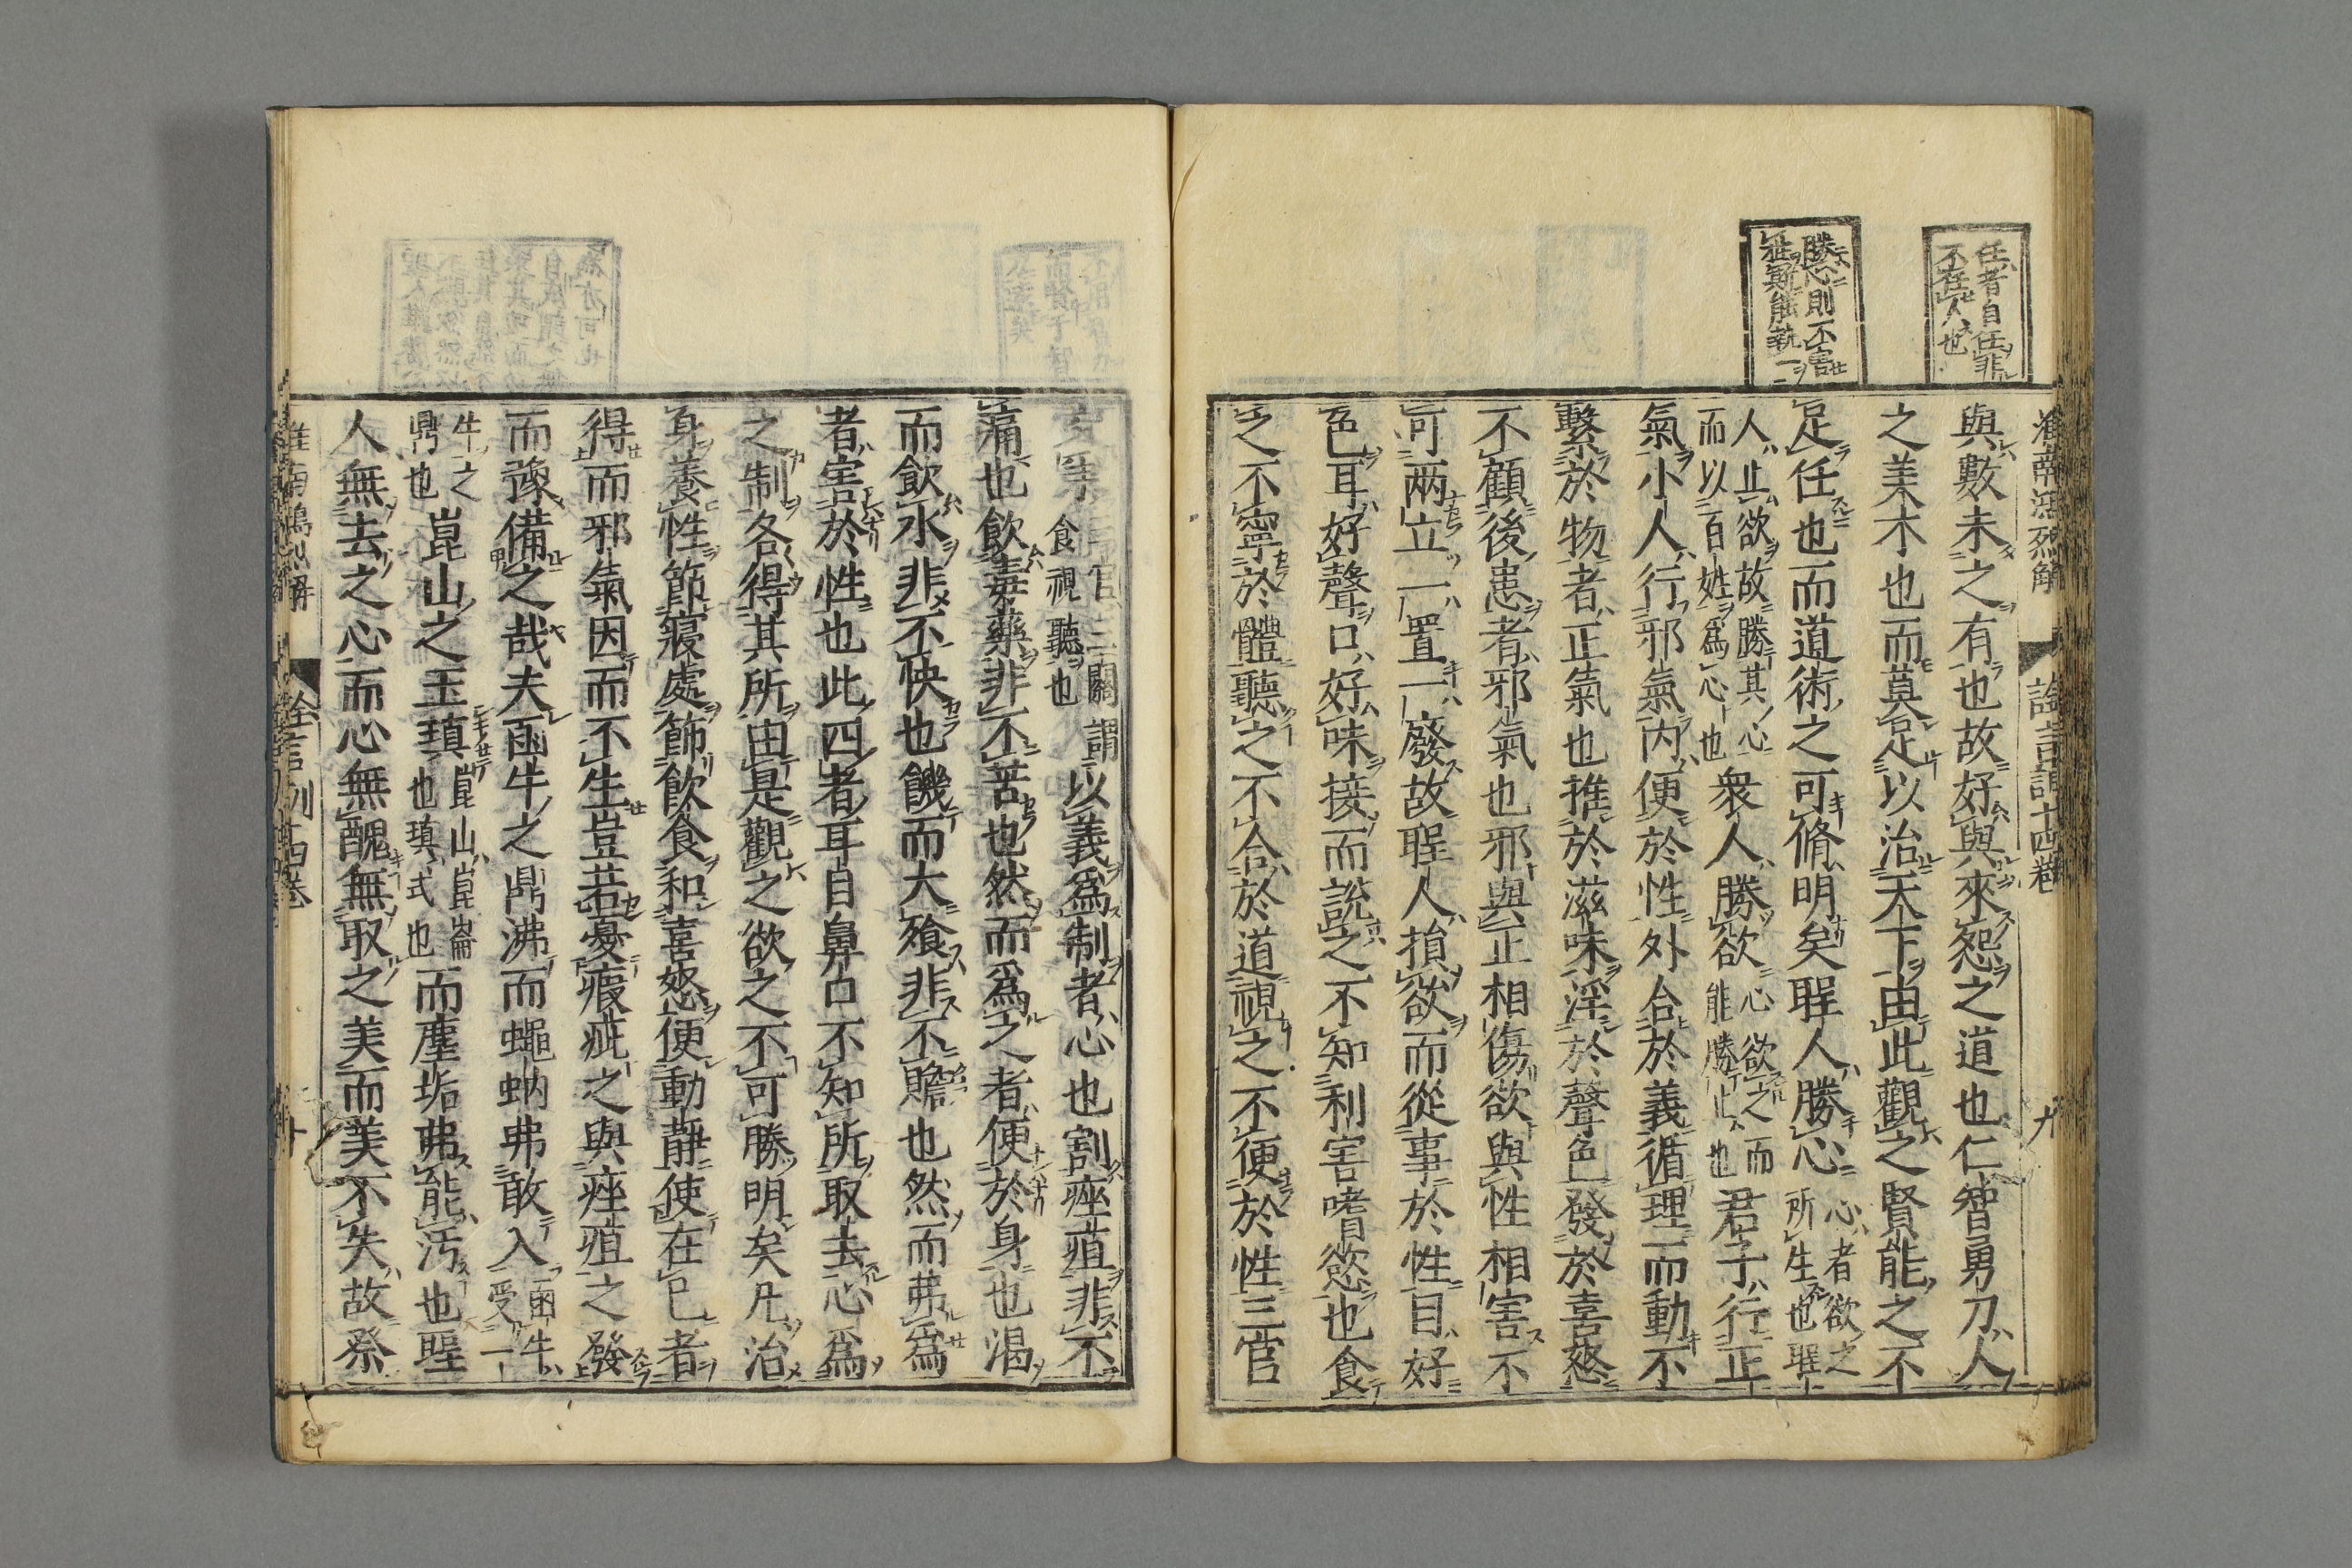 淮南鴻烈解
詮言訓十四卷
九
任者自任非
不在人也
勝心則不害
雖斯能執一
與數未之有也故好與來怨之道也仁智勇力人
之美木也而莫足以治天下由此觀之賢能之不
足任也而道術之可脩明矣聖人勝心
心者欲之
所生也聖
人止欲故勝其心
而以百姓爲心也
衆人勝欲
心欲之而
能勝止也
君子行正
氣小人行邪氣內便於性外合於義循理而動不
繫於物者正氣也推於滋味淫於聲色發於喜怒
不顧後患者邪氣也邪與正相傷欲與性相害不
可両立一置一廢故聖人損欲而從事於性目好
色耳好聲口好味接而說之不知利害嗜慾也食
之不寧於體聽之不合於道視之不便於性三官
交爭
三官三關謂
食視聽也
以義爲制者心也割痤疽非不
痛也飲毒藥非不苦也然而爲之者便於身也渴
而飲水非不快也饑而大飧非不贍也然而弗爲
者害於性也此四者耳目鼻口不知所取去心爲
之制各得其所由是觀之欲之不可勝明矣凡治
身養性節寢處節飲食和喜怒便動靜使在己者
得而邪氣因而不生豈若憂瘕疵之與痤疽之發
而豫備之哉夫函牛之鼎沸而蠅蚋弗敢入
函牛
受一
牛之
鼎也
崑山之玉瑱
崑山崑崙
也瑱式也
而塵垢弗能污也聖
人無去之心而心無醜無取之美而美不失故祭
淮南鴻烈解
詮言訓十四卷
十